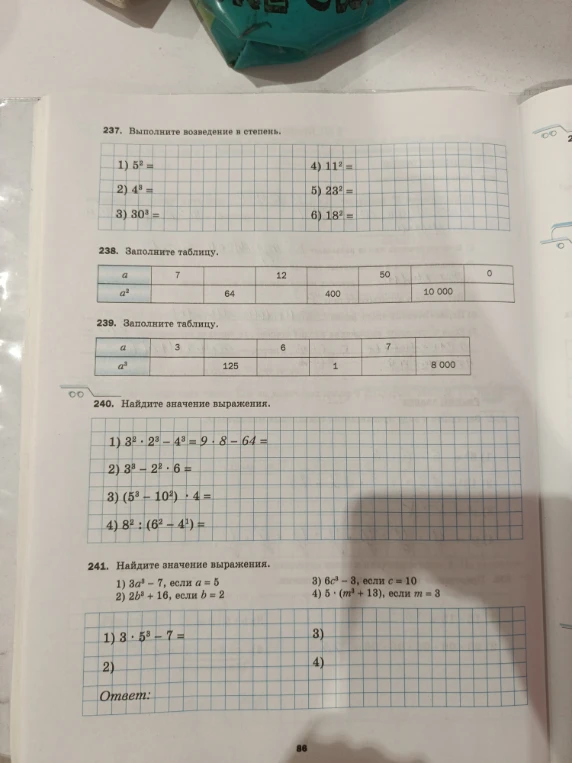 237. Выполните возведение в степень.
1) 5² =
4) 11² =
2) 4³ =
5) 23² =
3) 30³ =
6) 18² =
238. Заполните таблицу.
a 7 12 50 0
a² 64 400 10 000
239. Заполните таблицу.
a 3 6 7
a³ 125 1 8 000
240. Найдите значение выражения.
1) 3² · 2³ − 4³ = 9 · 8 − 64 =
2) 3³ − 2² · 6 =
3) (5³ − 10²) · 4 =
4) 8² : (6² − 4¹) =
241. Найдите значение выражения.
1) 3a³ − 7, если a = 5
3) 6c³ − 3, если c = 10
2) 2b² + 16, если b = 2
4) 5 · (m³ + 13), если m = 3
1) 3 · 5³ − 7 =
3)
2)
4)
Ответ:
86